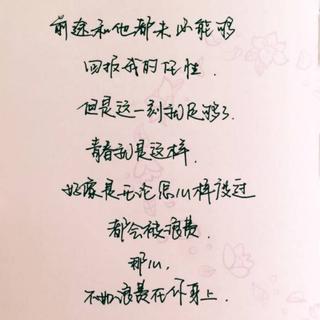 前途和他都未必能够
回报我的任性.
但是这一刻我足够了.
青春就是这样.
好像是无论怎么样读过
都会被浪费.
那么,
不如浪费在你身上.